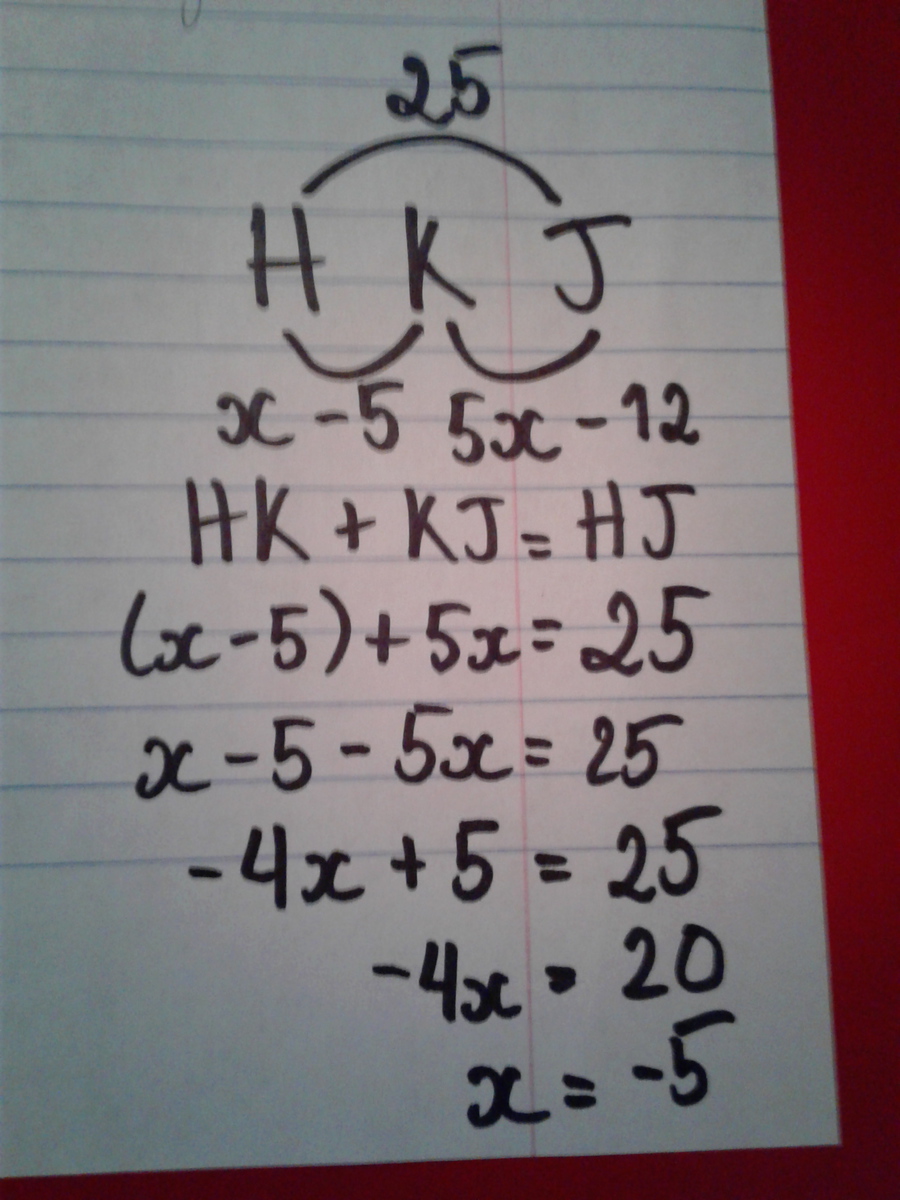 25
H K J
x - 5 5x - 12
HK + KJ = HJ
(x - 5) + 5x = 25
x - 5 - 5x = 25
-4x + 5 = 25
-4x = 20
x = -5